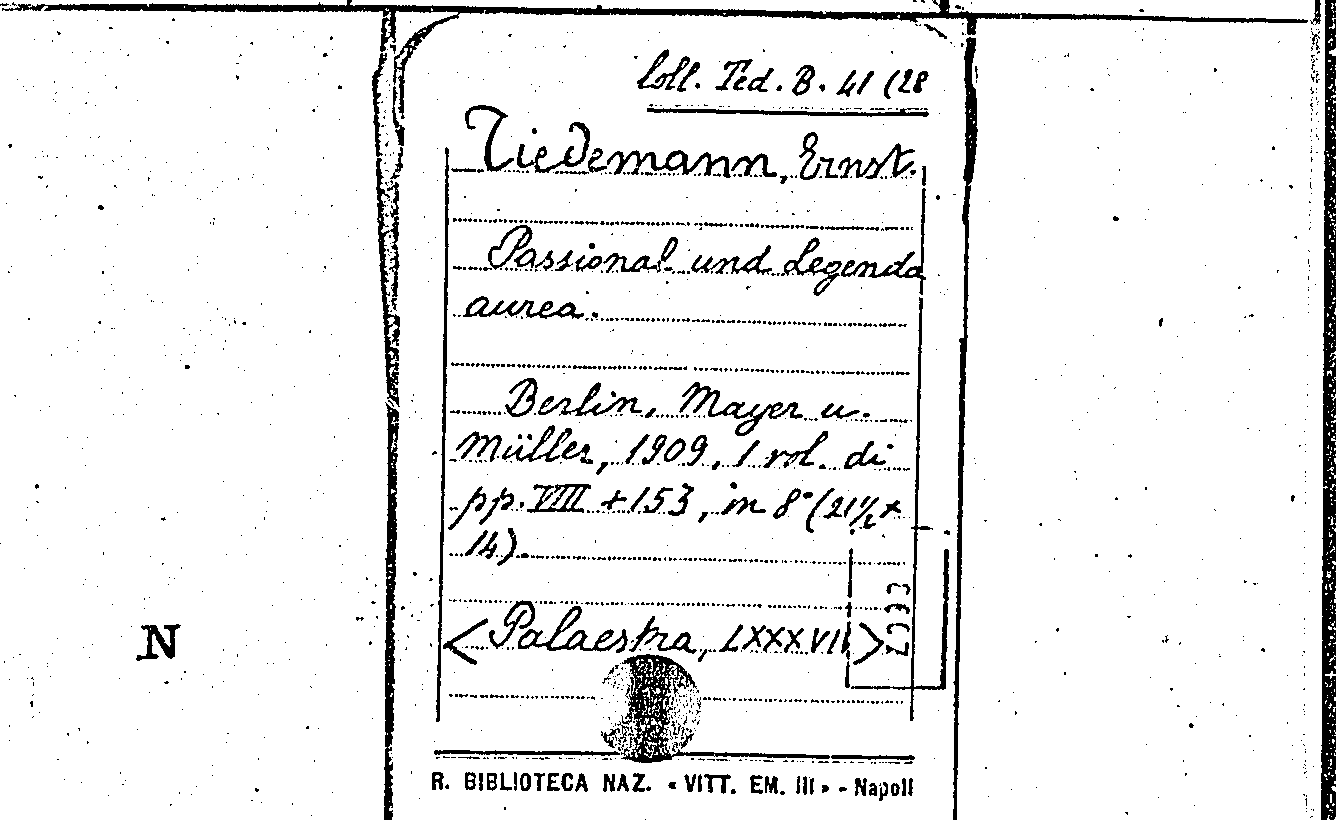 Coll. Ted. B. 41 (28
Tiedemann, Ernst.
Passional und Legenda
aurea.
Berlin, Mayer u.
Müller, 1909, 1 vol. di
pp. VIII + 153, in 8° (21½ x
14).
<Palaestra, LXXXVII>
N
R. BIBLIOTECA NAZ. « VITT. EM. III » - Napoli